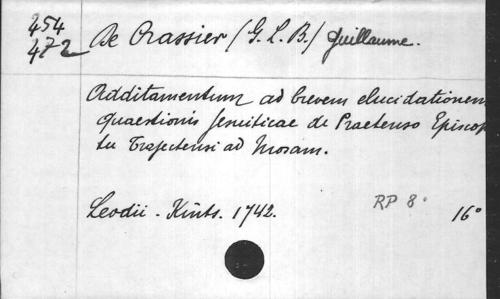 454
472
De Crassier / (G. L. B.) Guillaume.
Additamentum ad brevem elucidationem
quaestionis Jesuiticae de Praetenso Episcop
tu Trajectensi ad Mosam.
Leodii - Kints. 1742. RP 8° 16°